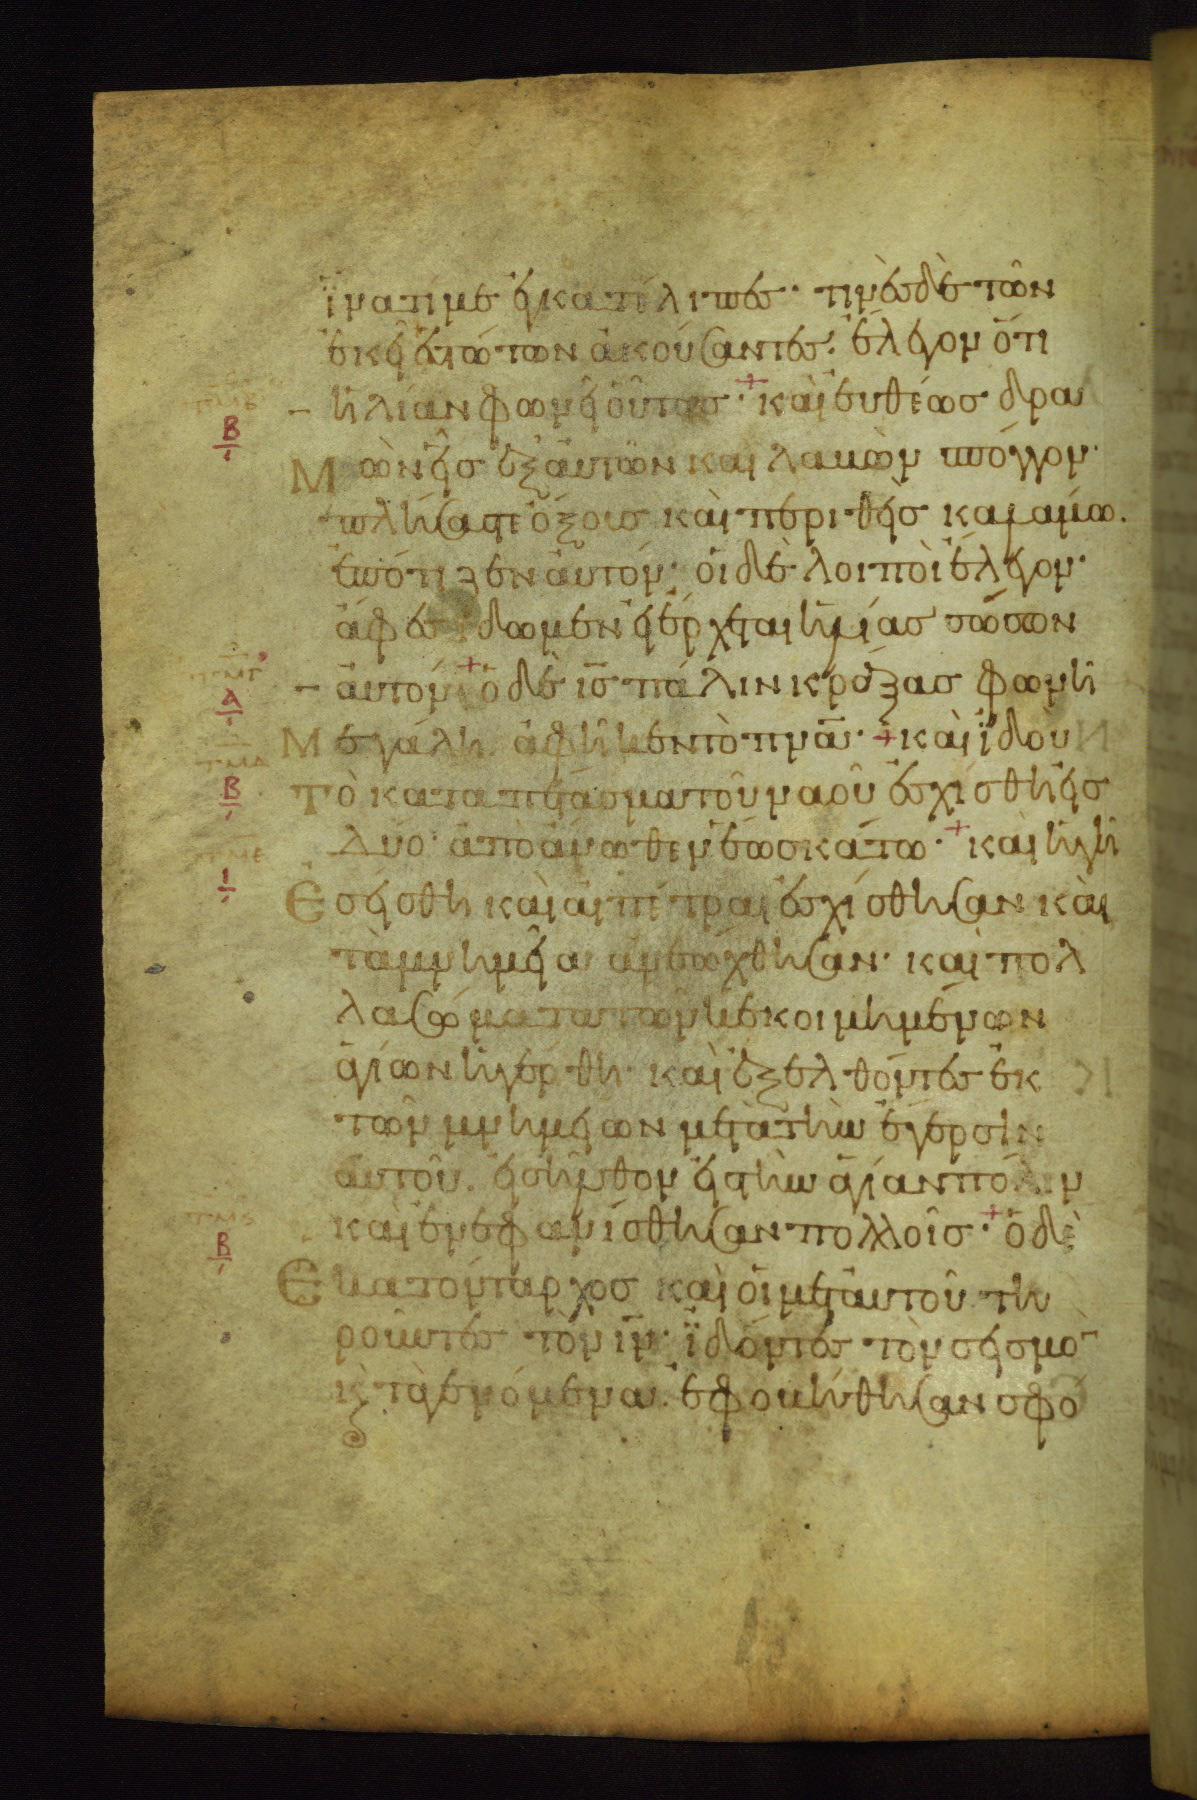 ἵνα τί με ἐγκατέλιπες· τινὲς δὲ τῶν
ἐκεῖ ἑστώτων ἀκούσαντες· ἔλεγον ὅτι
ἠλίαν φωνεῖ οὗτος· + καὶ εὐθέως δρα
Β
μὼν εἷς ἐξ αὐτῶν καὶ λαβὼν σπόγγον·
πλήσας τε ὄξους καὶ περιθεὶς καλάμω.
ἐπότιζεν αὐτόν· οἱ δὲ λοιποὶ ἔλεγον·
ἄφες ἴδωμεν εἰ ἔρχεται ἠλίας σώσων
αὐτόν + ὁ δὲ ις πάλιν κράξας φωνῆ
Α
Μεγάλη ἀφῆκεν τὸ πνα· + καὶ ἰδοὺ
Β
Τὸ καταπέτασμα τοῦ ναοῦ ἐσχίσθη εἰς
δύο· ἀπὸ ἄνωθεν ἕως κάτω· + καὶ ἡ γῆ
Ι
Ἐσείσθη καὶ αἱ πέτραι ἐσχίσθησαν καὶ
τὰ μνημεῖα ἀνεώχθησαν· καὶ πολ
λὰ σώματα τῶν κεκοιμημένων
ἁγίων ἠγέρθη· καὶ ἐξελθόντες ἐκ
τῶν μνημείων μετὰ τὴν ἔγερσιν
αὐτοῦ. εἰσῆλθον εἰς τὴν ἁγίαν πόλιν
καὶ ἐνεφανίσθησαν πολλοῖς· + ὁ δὲ
Β
Ἑκατόνταρχος καὶ οἱ μετ αὐτοῦ τη
ροῦντες τὸν ιν· ἰδόντες τὸν σεισμὸ
κ τὰ γενόμενα. ἐφοβήθησαν σφό